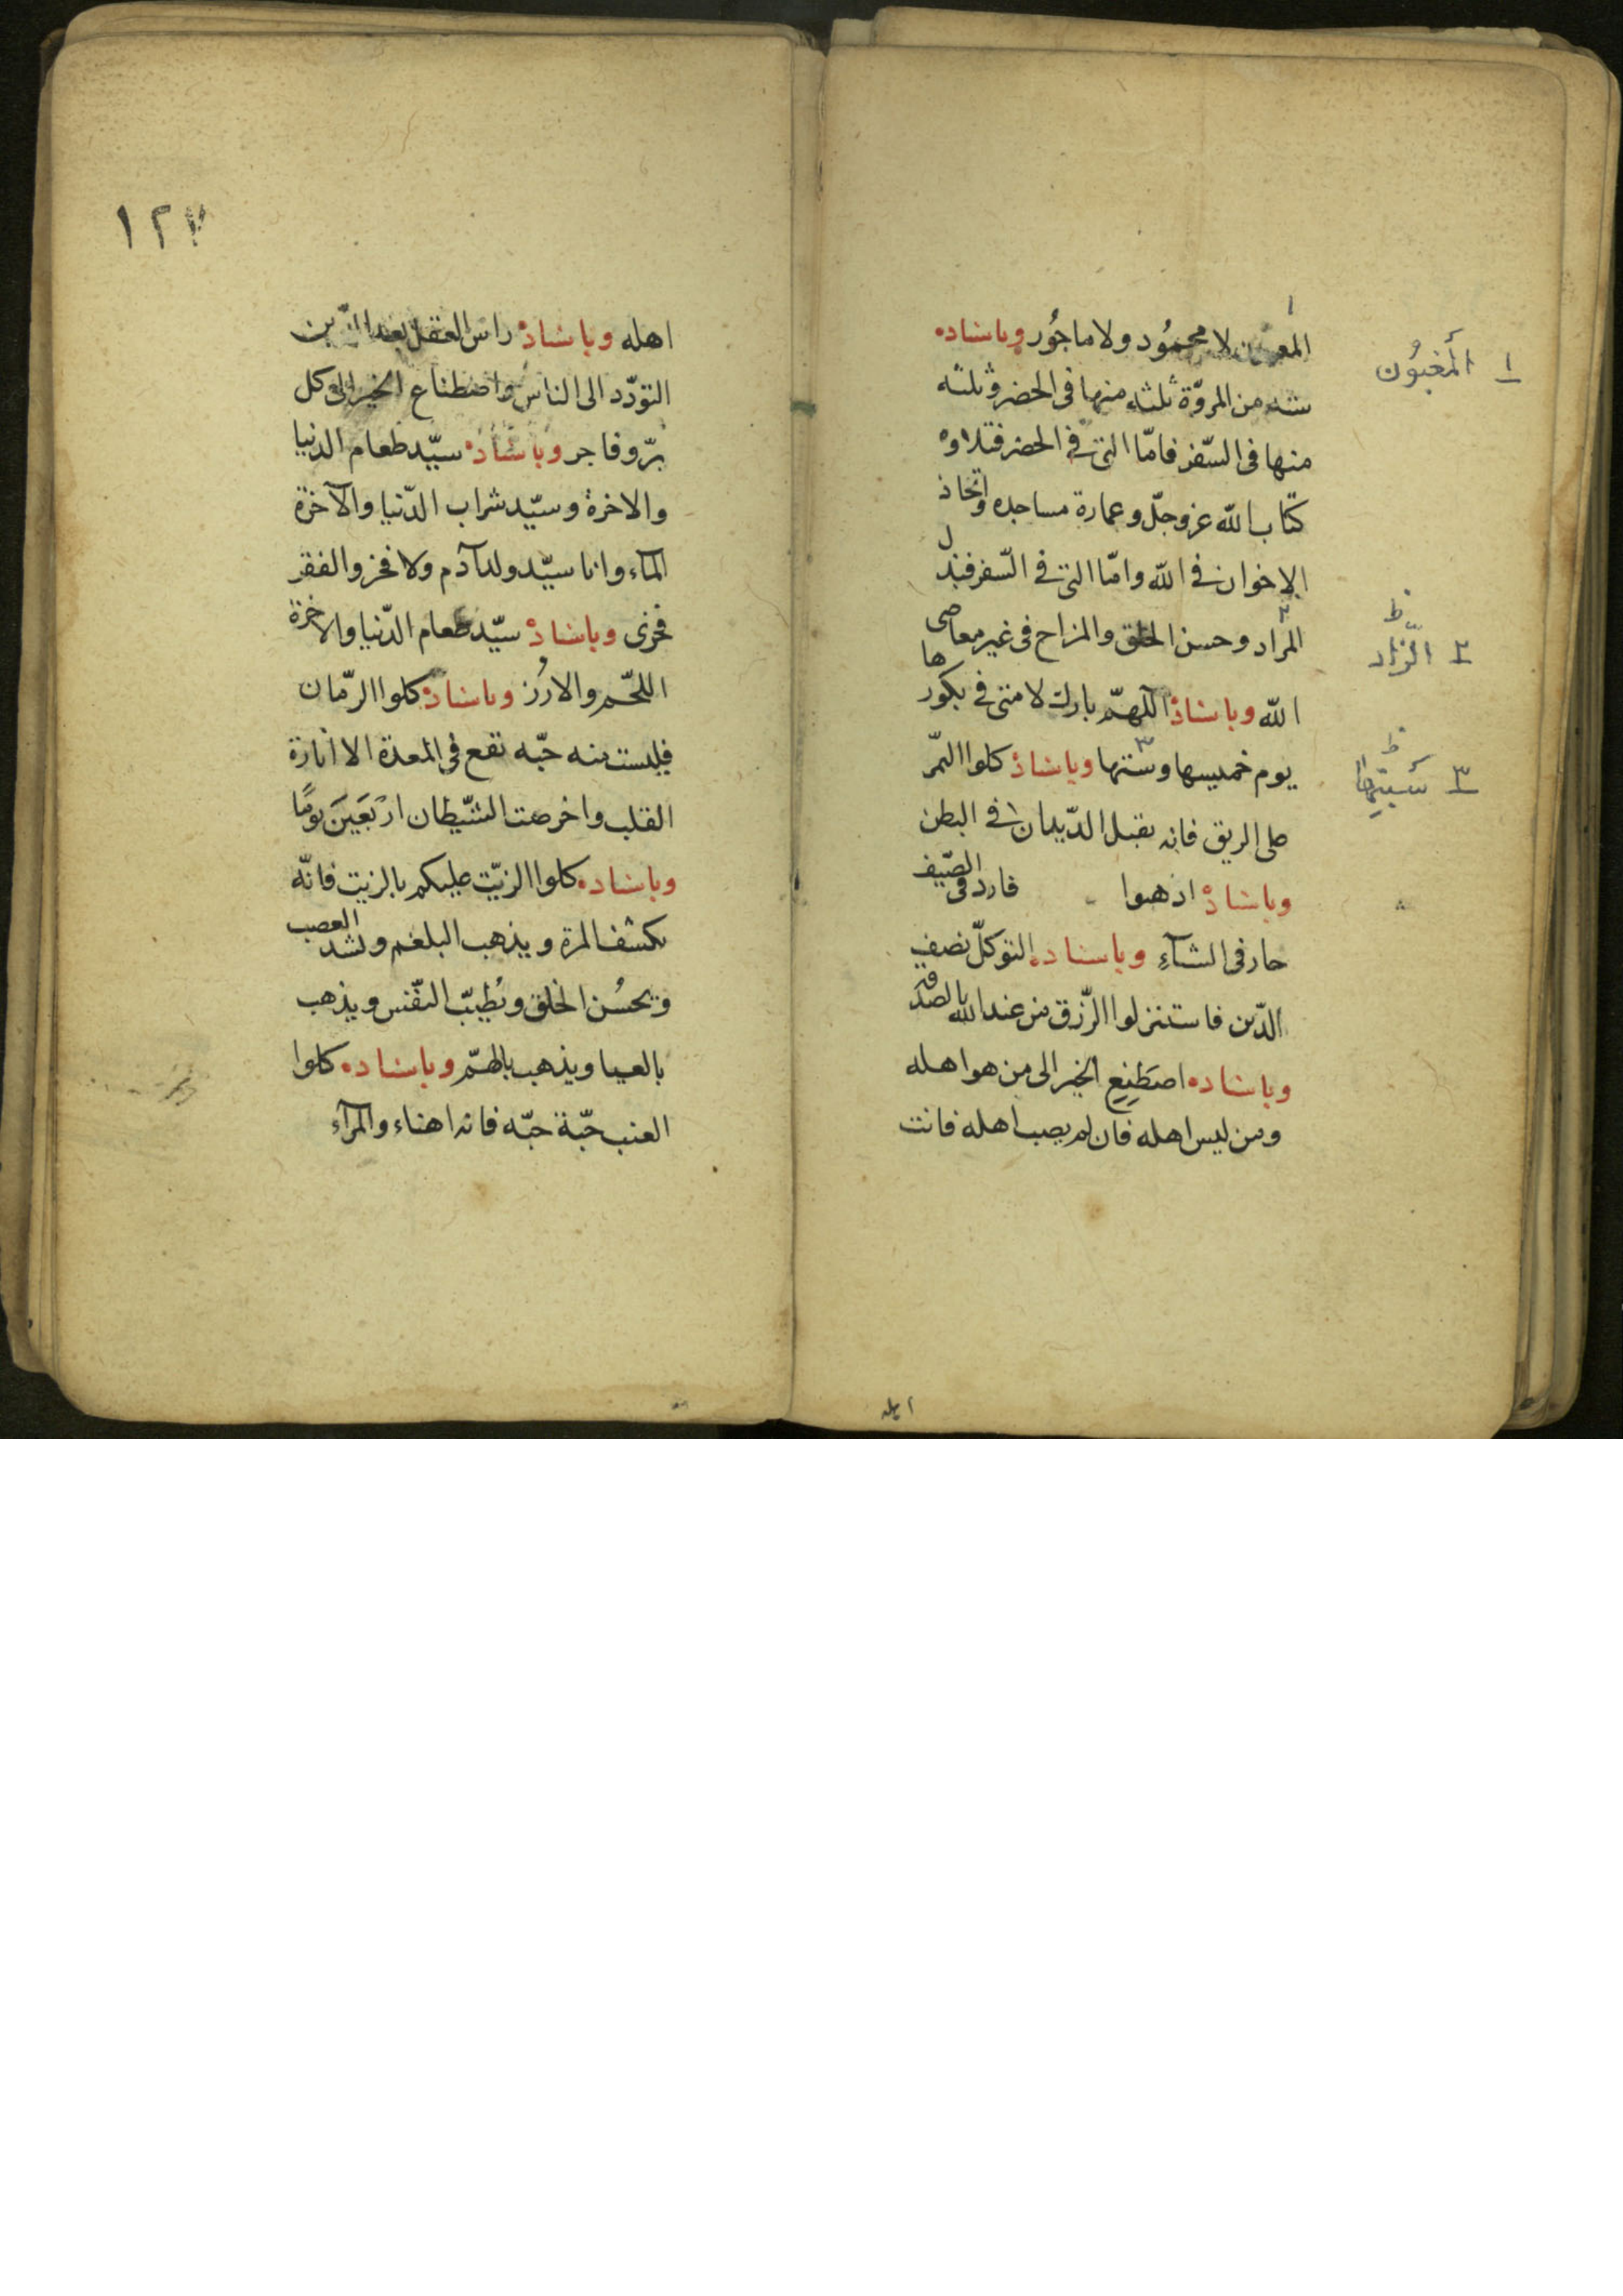 لا محمُود ولا ماجُور وباسناده
ستة من المروّة ثلثة منها فى الحضر وثلثة
منها فى السّفر فامّا التى فى الحضر فتلاوة
كتاب الله عز وجلّ وعمارة مساجده واتخاذ
الاخوان فى الله وامّا التى فى السّفر فبذل
المراد وحسن الخلق والمزاح فى غير معاصى
الله وباسناده اللهمّ بارك لامتى فى بكورها
يوم خميسها وستها وباسناده كلوا التمّر
على الريق فانه يقتل الدّيدان فى البطن
وباسناده ادهنوا فارد فى الصّيف
حار فى الشتآءِ وباسناده التوكلّ نصف
الدّين فاستنزلوا الرّزق من عند الله بالصدقة
وباسناده اصطَنِعِ الخير الى من هو اهله
ومن ليس اهله فان لم يصب اهله فانت
١ المَغبُوُن
٢ الزّاد ظ
٣ سَبتِها ظ
اهله
١٢٧
اهله وباسناده راس العقل بعد الدّين
التودّد الى الناس واصطناع الخير الى كل
برّ وفاجر وباسناده سيّد طعام الدنيا
والاخرة وسيّد شراب الدّنيا والآخرة
المآء وانا سيّد ولد آدم ولا فخر والفقر
فخرى وباسناده سيّد طعام الدّنيا والاخرة
اللحّم والارُز وباسناده كلوا الرّمان
فليست منه حبّه تقع فى المعدة الا انارة
القلب واخرصت الشّيطان ارْبَعَيَنَ يومًا
وباسناده كلوا الزيّت عليكم بالزيت فانّه
يكشف المرة ويذهب البلغم ويشد العصب
ويحسُن الخلق ويُطيبّ النفّس ويذهب
بالعيا ويذهب بالهمّ وباسناده كلوا
العنب حبّة حبّه فانه اهناء والمرآء